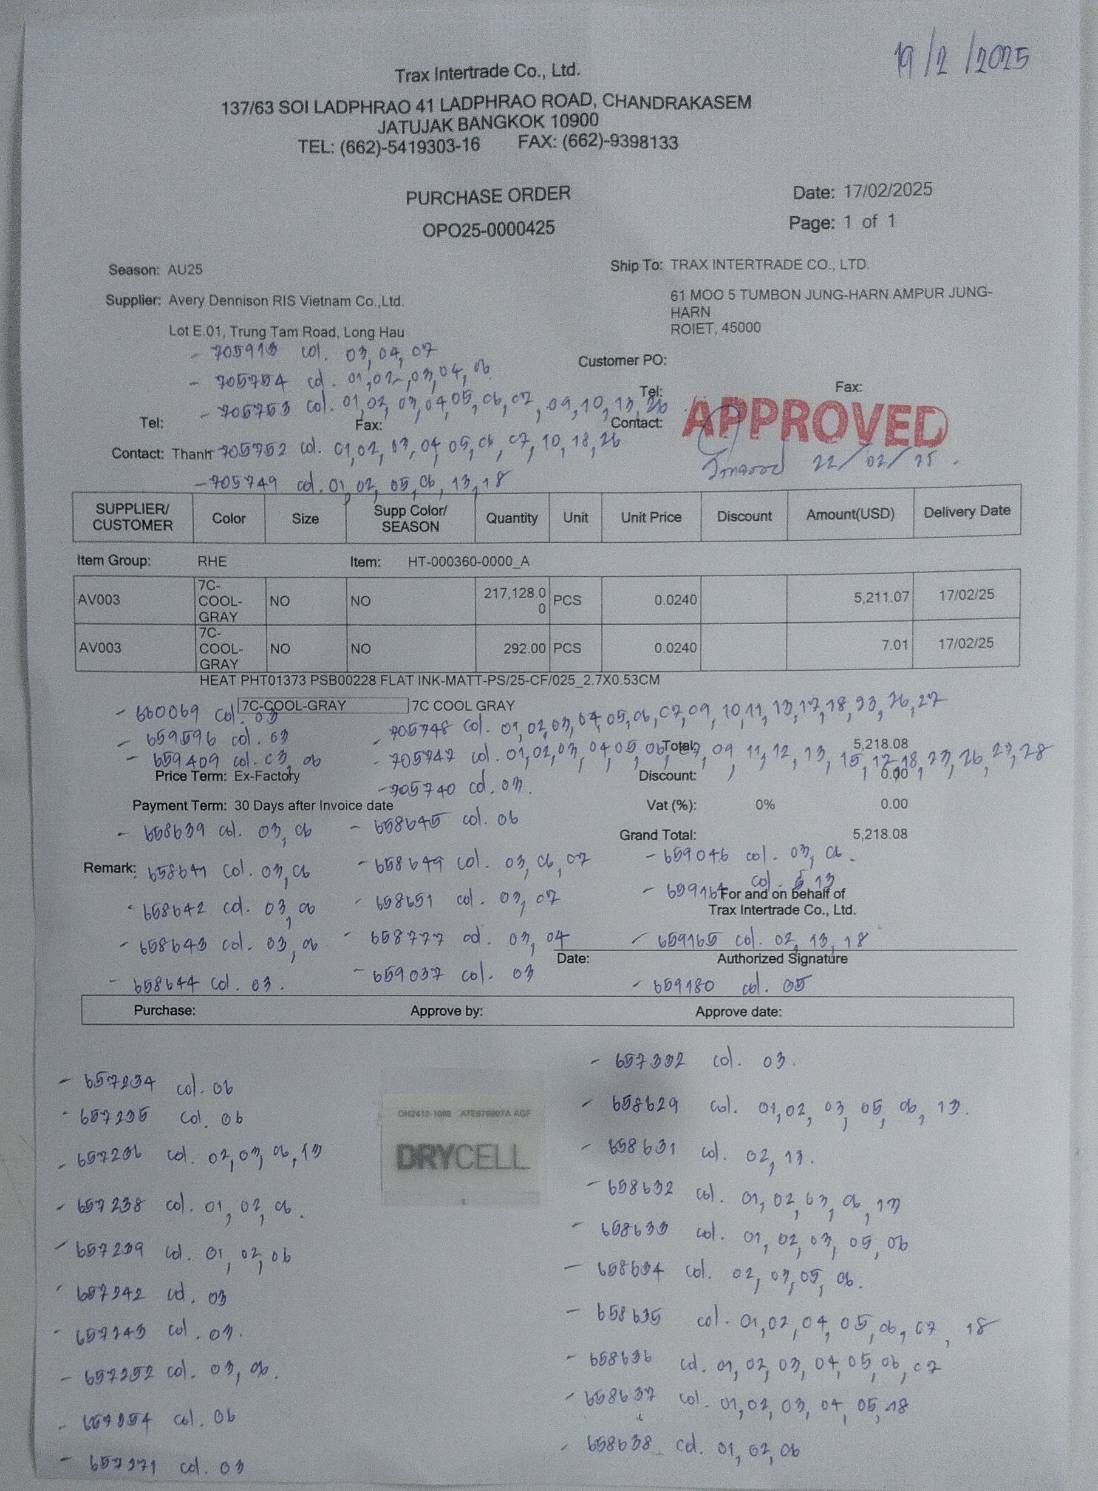 19/2/2025
Trax Intertrade Co., Ltd.
137/63 SOI LADPHRAO 41 LADPHRAO ROAD, CHANDRAKASEM
JATUJAK BANGKOK 10900
TEL: (662)-5419303-16 FAX: (662)-9398133
PURCHASE ORDER
OPO25-0000425
Date: 17/02/2025
Page: 1 of 1
Season: AU25
Ship To: TRAX INTERTRADE CO., LTD.
Supplier: Avery Dennison RIS Vietnam Co.,Ltd.
61 MOO 5 TUMBON JUNG-HARN AMPUR JUNG-
HARN
Lot E.01, Trung Tam Road, Long Hau
ROIET, 45000
- 705913 col. 03, 04, 07
Customer PO:
- 705754 col. 01, 02, 03, 04, 06
Tel:
Fax:
- 705753 col. 01, 02, 03, 04, 05, 06, 07, 09, 10, 13, 26
Tel:
Fax:
Contact:
APPROVED
22/02/25.
Contact: Thanh
705752 col. 01, 02, 03, 04, 05, 06, 07, 10, 18, 26
- 705749 col. 01, 02, 05, 06, 13, 18
SUPPLIER/ CUSTOMER Color Size Supp Color/ SEASON Quantity Unit Unit Price Discount Amount(USD) Delivery Date
Item Group: RHE Item: HT-000360-0000_A
AV003 7C-COOL-GRAY NO NO 217,128.00 PCS 0.0240 5,211.07 17/02/25
AV003 7C-COOL-GRAY NO NO 292.00 PCS 0.0240 7.01 17/02/25
HEAT PHT01373 PSB00228 FLAT INK-MATT-PS/25-CF/025_2.7X0.53CM
7C-COOL-GRAY 7C COOL GRAY
- 660069 col. 03
- 705748 col. 01, 02, 03, 04, 05, 06, 07, 09, 10, 11, 13, 17, 18, 23, 26, 27
- 659596 col. 03
Total: 5,218.08
- 705747 col. 01, 02, 03, 04, 05, 06, 09, 11, 12, 13, 15, 17, 18, 23, 26, 27, 28
- 659409 col. 03, 06
Price Term: Ex-Factory
Discount: 0.00
- 705740 col. 03.
Payment Term: 30 Days after Invoice date
Vat (%): 0% 0.00
- 658639 col. 03, 06
- 658645 col. 06
Grand Total: 5,218.08
Remark:
658641 col. 03, 06
- 658649 col. 03, 06, 07
- 659046 col. 03, 06.
- 658642 col. 03, 06
- 658651 col. 03, 07
- 659164 col. 13
For and on behalf of
Trax Intertrade Co., Ltd.
- 658643 col. 03, 06
- 658777 col. 03, 04
- 659165 col. 02, 13, 18
Date:
Authorized Signature
- 658644 col. 03.
- 659037 col. 03
- 659180 col. 05
Purchase: Approve by: Approve date:
- 657234 col. 06
- 657235 col. 06
- 657236 col. 02, 03, 06, 13
- 657238 col. 01, 02, 06.
- 657239 col. 01, 02, 06
- 657242 col. 03
- 657243 col. 03.
- 657252 col. 03, 06.
- 657254 col. 06
- 657271 col. 03
DRYCELL
- 657332 col. 03.
- 658629 col. 01, 02, 03, 05, 06, 13.
- 658631 col. 02, 13.
- 658632 col. 01, 02, 03, 06, 13
- 658633 col. 01, 02, 03, 05, 06
- 658634 col. 02, 03, 05, 06.
- 658635 col. 01, 02, 04, 05, 06, 07, 18
- 658636 col. 01, 02, 03, 04, 05, 06, 07
- 658637 col. 01, 02, 03, 04, 05, 18
- 658638 col. 01, 02, 06